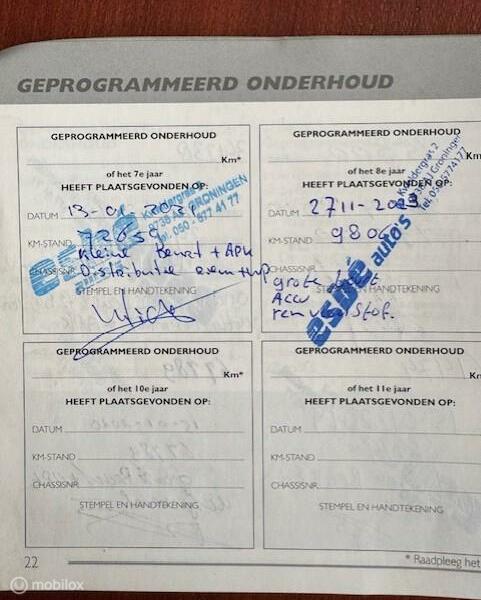 GEPROGRAMMEERD ONDERHOUD
GEPROGRAMMEERD ONDERHOUD
Km*
of het 7e jaar
HEEFT PLAATSGEVONDEN OP:
DATUM 13-01-2021
KM-STAND
kleine Beurt + APK
CHASSISNR. Distributie riem + wp
STEMPEL EN HANDTEKENING
esbé
GRONINGEN
Tel. 050-577 41 77
GEPROGRAMMEERD ONDERHOUD
Km
of het 8e jaar
HEEFT PLAATSGEVONDEN OP:
DATUM 27 11-2023
KM-STAND
CHASSISNR. grote beurt
Accu
STEMPEL EN HANDTEKENING
remvloeistof.
esbé auto's
Groningen
Tel. 050-5774177
GEPROGRAMMEERD ONDERHOUD
Km*
of het 10e jaar
HEEFT PLAATSGEVONDEN OP:
DATUM
KM-STAND
CHASSISNR.
STEMPEL EN HANDTEKENING
GEPROGRAMMEERD ONDERHOUD
Km
of het 11e jaar
HEEFT PLAATSGEVONDEN OP:
DATUM
KM-STAND
CHASSISNR.
STEMPEL EN HANDTEKENING
22
* Raadpleeg het
mobilox